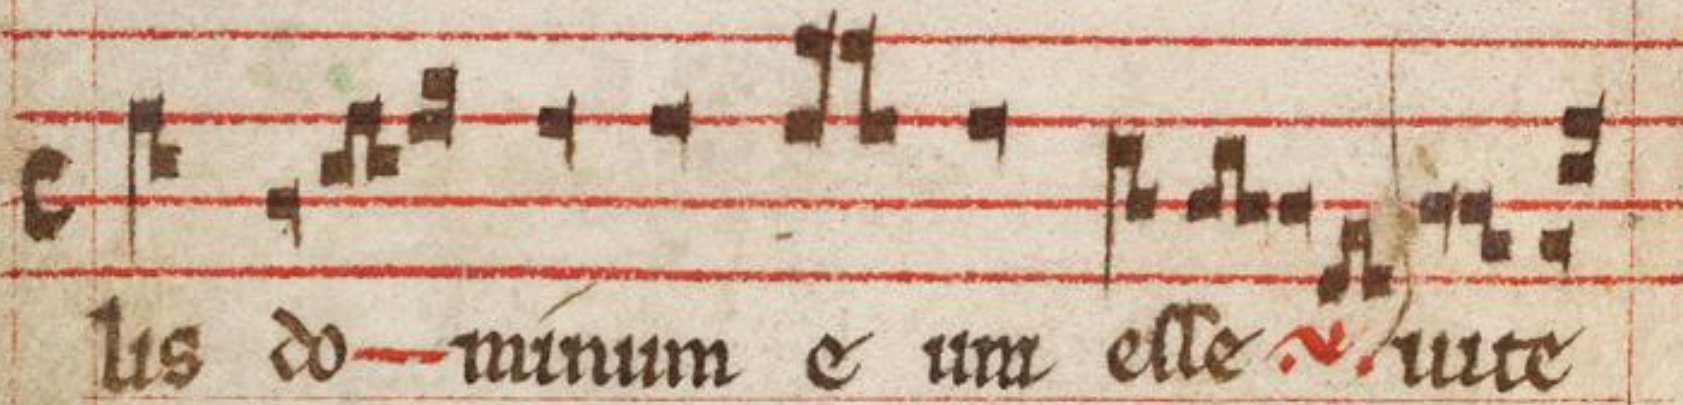 lis do—minum e um esse .v. uite